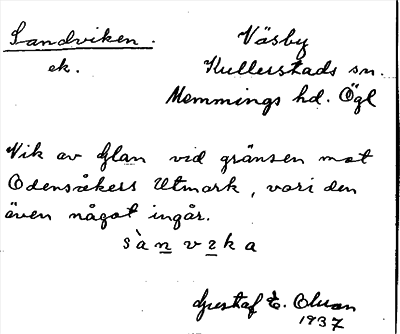 Sandviken.
ek.
Väsby
Kullerstads sn.
Memmings hd. Ögl
Vik av Glan vid gränsen mot
Odensåkers Utmark, vari den
även något ingår.
sànvɩka
Gustaf E. Olson
1937